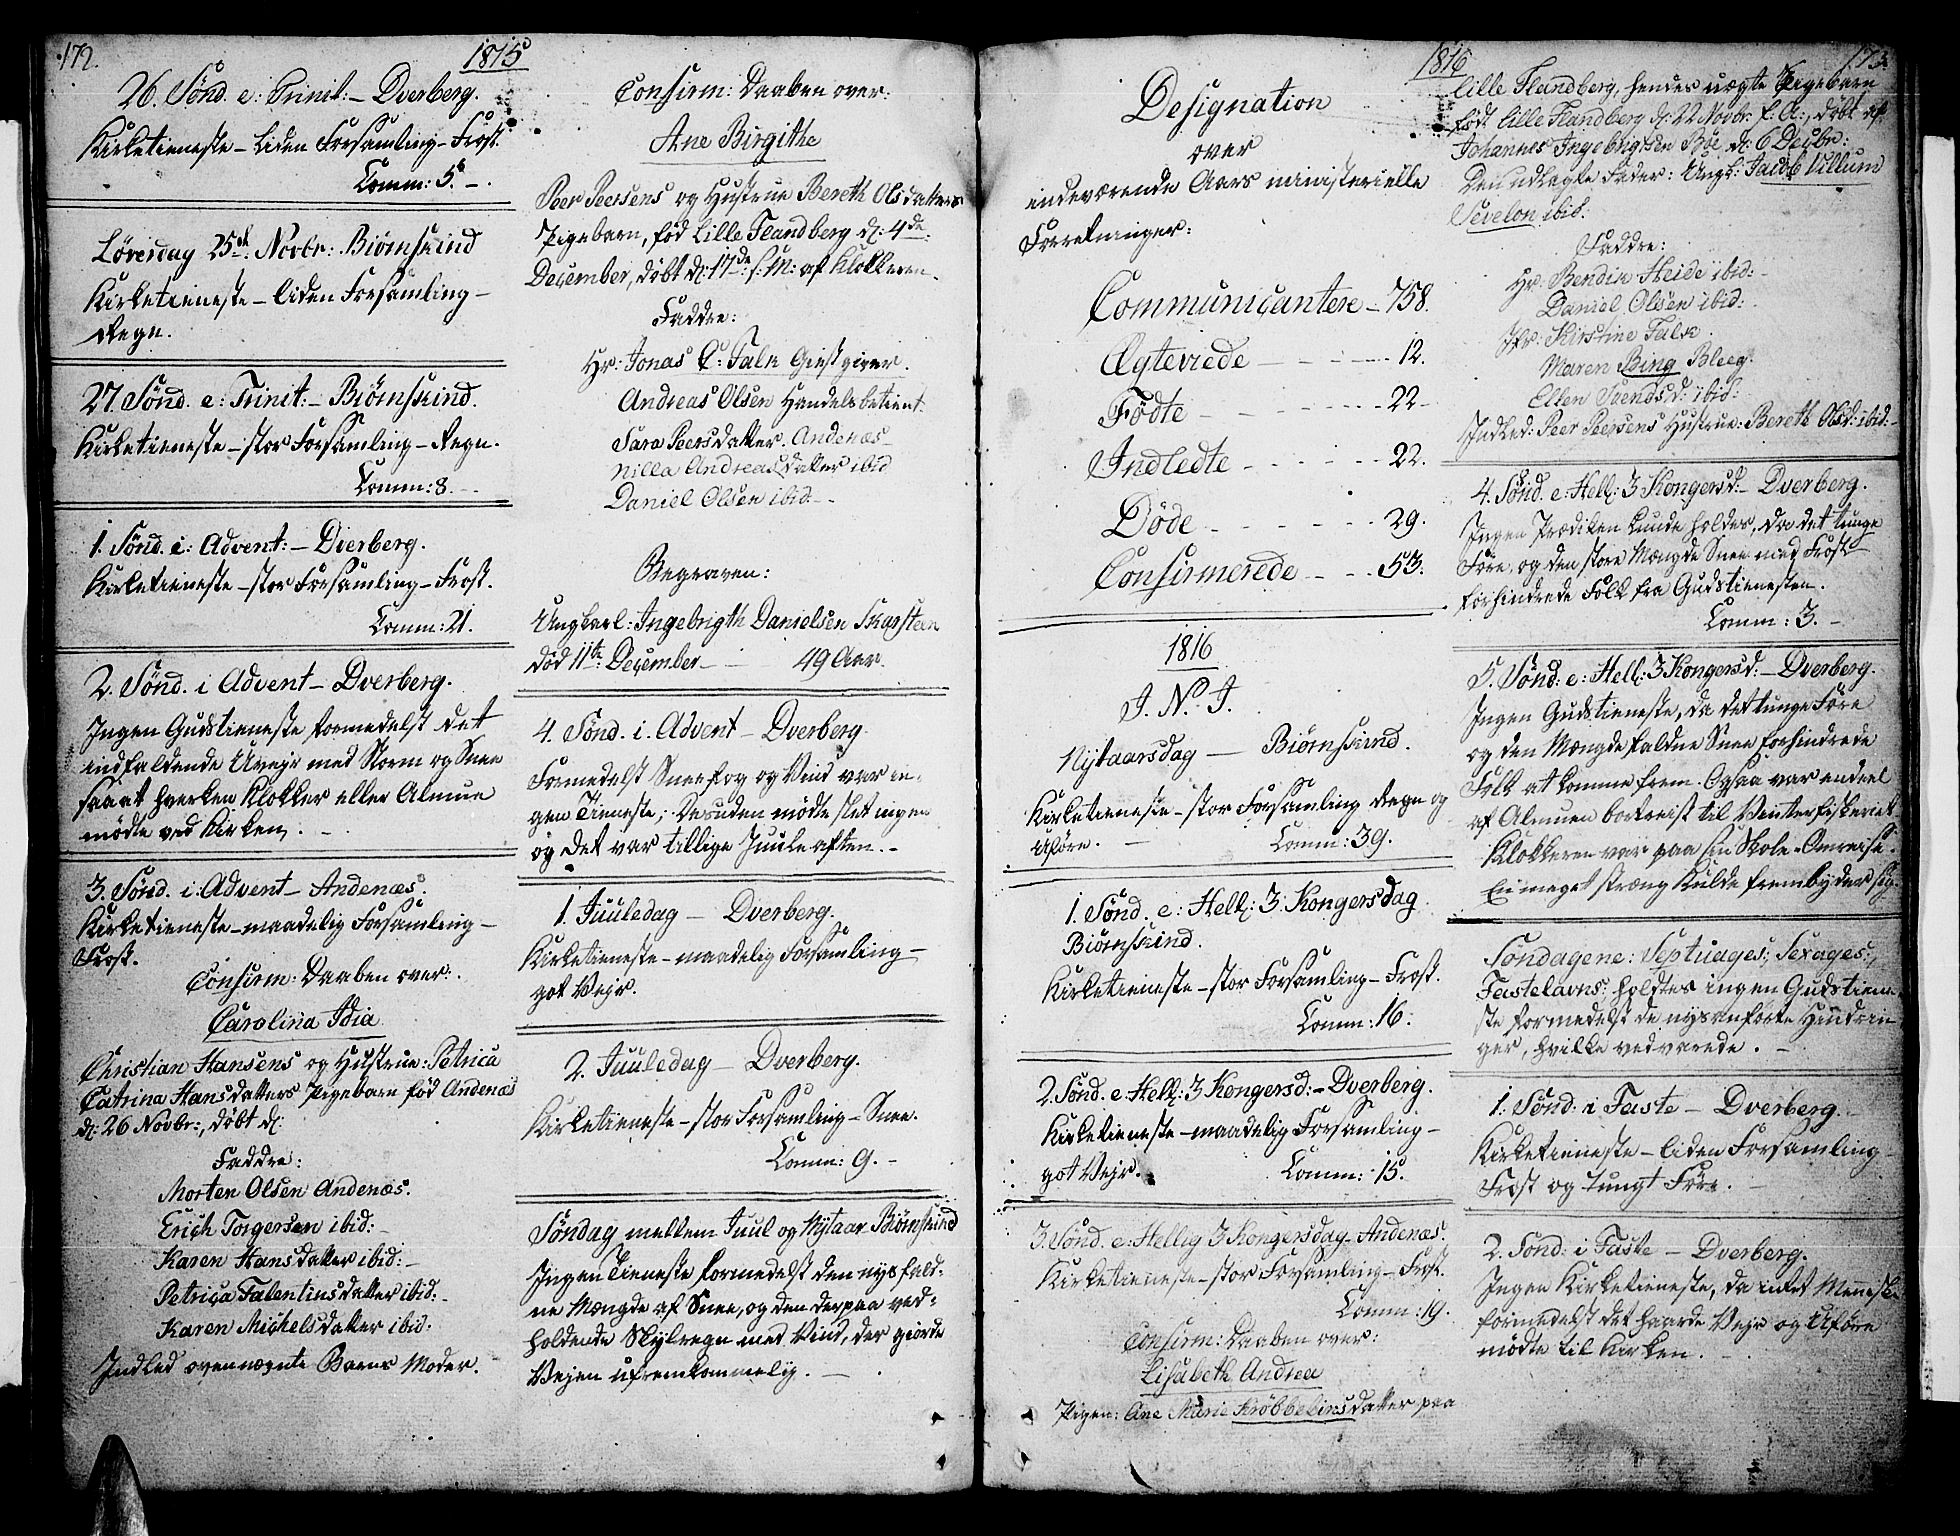 172.
1815
26. Sønd. e: Trinit:– Dverberg.
Kirketieneste – liden Forsamling – Frost.
Comm: 5. –
Løverdag 25de Novbr: Biørnskind
Kirketieneste – liden Forsamling –
Regn.
27. Sønd. e: Trinit:– Biørnskind.
Kirketieneste – stor Forsamling – Regn.
Comm: 8. –
1. Sønd. i: Advent:– Dverberg.
Kirketieneste – stor Forsamling – Frost.
Comm: 21.
2. Sønd. i Advent – Dverberg.
Ingen Gudstieneste formedelst det
indfaldende Uvejr med Storm og Snee
saa at hverken Klokker eller Almue
mødte ved Kirken. –
3. Sønd. i: Advent – Andenæs.
Kirketieneste – maadelig Forsamling –
Frost.
Confirm: Daaben over:
Carolina Idia
Christian Hansens og Hustrue: Petrica
Catrina Hansdatters Pigebarn fød Andenæs
d: 26 Novbr:, døbt d:
Faddre:
Morten Olsen Andenæs.
Erich Torgersen ibid: –
Karen Hansdatter ibid: –
Petrica Falentinsdatter ibid: –
Karen Michelsdatter ibid:
Indled ovennævnte Barns Moder.
Confirm: Daaben over:
Ane Birgitha
Peer Peersens og Hustrue Bereth Olsdatters
Pigebarn, fød Lille Flandberg d: 4de
December, døbt d: 17de s: M: af Klokkeren.
Faddre:
Hr: Jonas C: Falk Giestgiver.
Andreas Olsen Handelsbetient
Sara Peersdatter. Andenæs –
Nilla Andreasdatter ibid
Daniel Olsen ibid: –
Begraven:
Ungkarl: Ingebrigth Danielsen Skarsteen
død 11te December – – 49 Aar.
4. Sønd. i. Advent – Dverberg.
Formedelst Sneefog og Vind var in-
gen Tieneste; Desuden mødte slet ingen
og det var tillige Juule aften. –
1. Juuledag – Dverberg.
Kirketieneste – maadelig Forsamling –
got Vejr.
2. Juuledag – Dverberg.
Kirketieneste – stor Forsamling – Snee.
Comm: 9. –
Søndag mellem Juul og Nytaar Biørnskind
Ingen Tieneste formedelst den nys fald-
ne Mængde af Snee, og den derpaa ved-
holdende Slykregn med Vind, der giorde
Vejen ufremkommelig. –
1816
173.
Designation
over
indeværende Aars ministerielle
Forretninger:
Communicantere – 758.
Ægteviede – – – 12.
Fødte – – – 22 –
Indledte – – – 22.
Døde – – – 29.
Confirmerede – – – 53.
1816
I. N. J.
Nytaarsdag – Biørnskind.
Kirketieneste – stor Forsamling Regn og
Uføre. – Comm: 39.
1. Sønd. e: Hell: 3 Kongersdag
Biørnskind.
Kirketieneste – stor Forsamling – Frost.
Comm: 16.
2. Sønd. e: Hell: 3 Kongersd:– Dverberg.
Kirketieneste – maadelig Forsamling –
got Vejr. Comm: 15.
3. Sønd. e: Hellig 3 Kongersdag – Andenæs.
Kirketieneste – stor Forsamling – Frost.
Comm: 19.
Confirm: Daaben over:
Lisabeth Andrea
Pigen: Ane Marie Frøbbelinsdatter paa
Lille Flandberg, hendes uægte Pigebarn
født Lille Flandberg d: 22 Novbr: f. A:, døbt af
Johannes Ingebrigtsen Böe d: 6 Decbr:
Den udlagte Fader: Ungk: Jacob Villum
Sevelon ibid.
Faddre:
Hr. Bendix Heide ibid: –
Daniel Olsen ibid:
Jfr: Kirstine Falk.
Maren Bing Bleeg.
Ellen Svendsd: ibid:
Indled: Peer Peersens Hustrue: Bereth Olsd: ibid: –
4. Sønd. e: Hell: 3 Kongersd:– Dverberg.
Ingen Prædiken kunde holdes, da det tunge
Føre, og den store Mængde Snee med Frost –
forhindrede Folk fra Gudstienesten.
Comm: 3. –
5. Sønd: e: Hell: 3 Kongersd:– Dverberg.
Ingen Gudstieneste, da det tunge Føre
og den Mængde faldne Snee forhindrede
Folk at komme frem. Ogsaa var endeel
af Almuen bortreist til Vinterfiskeriet
Klokkeren var paa sin Skole-Omreise.
En meget stræng Kulde frembyder sig.
Søndagene: Septuages; Sexages:,
Fastelavns: holdtes ingen Gudstiene
ste formedelst de nysanførte Hindrin
ger, hvilke vedvarede. –
1. Sønd: i Faste – Dverberg.
Kirketieneste – liden Forsamling
Frost og tungt Føre. –
2. Sønd: i Faste – Dverberg.
Ingen Kirketieneste, da intet Menneske
formedelst det haarde Vejr og Uføre
mødte til Kirken. –